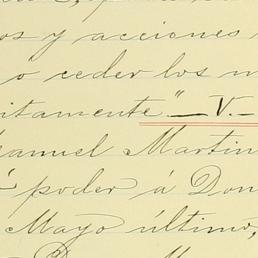 os y acciones
o ceder los
itamente" — V. —
Manuel Martin
poder á Don
Mayo último,